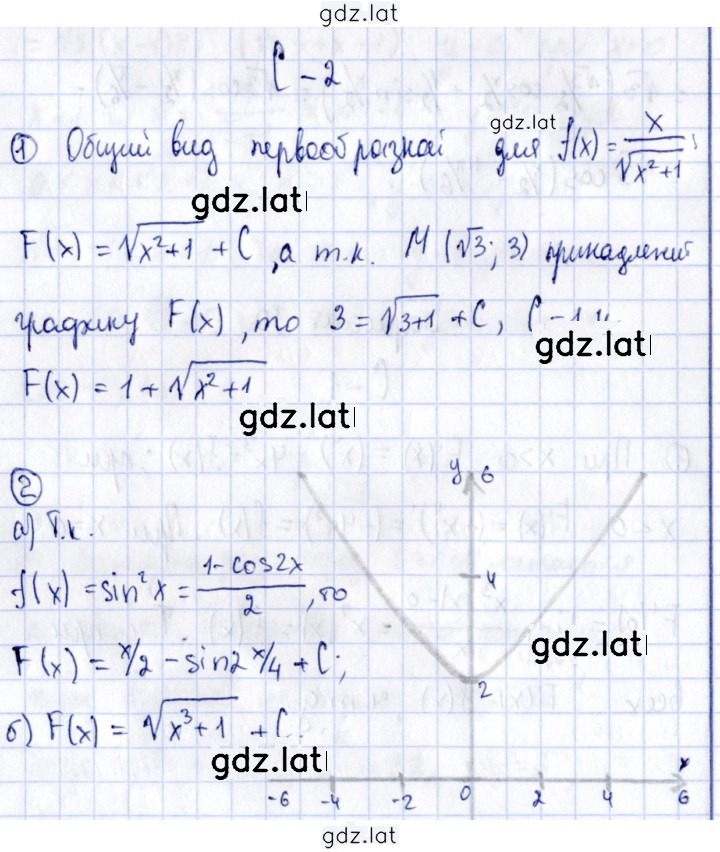 gdz.lat
С-2
① Общий вид первообразной для f(x) = x/√(x²+1),
gdz.lat
gdz.lat
F(x) = √(x²+1) + C, а т.к. M (√3; 3) принадлежит
графику F(x), то 3 = √(3+1) + C,
gdz.lat
F(x) = 1 + √(x²+1)
gdz.lat
②
а) Т.к.
f(x) = sin²x = (1-cos2x)/2, то
F(x) = x/2 - sin2x/4 + C;
gdz.lat
б) F(x) = √(x³+1) + C.
gdz.lat
y 6
4
2
x
-6 -4 -2 0 2 4 6
gdz.lat